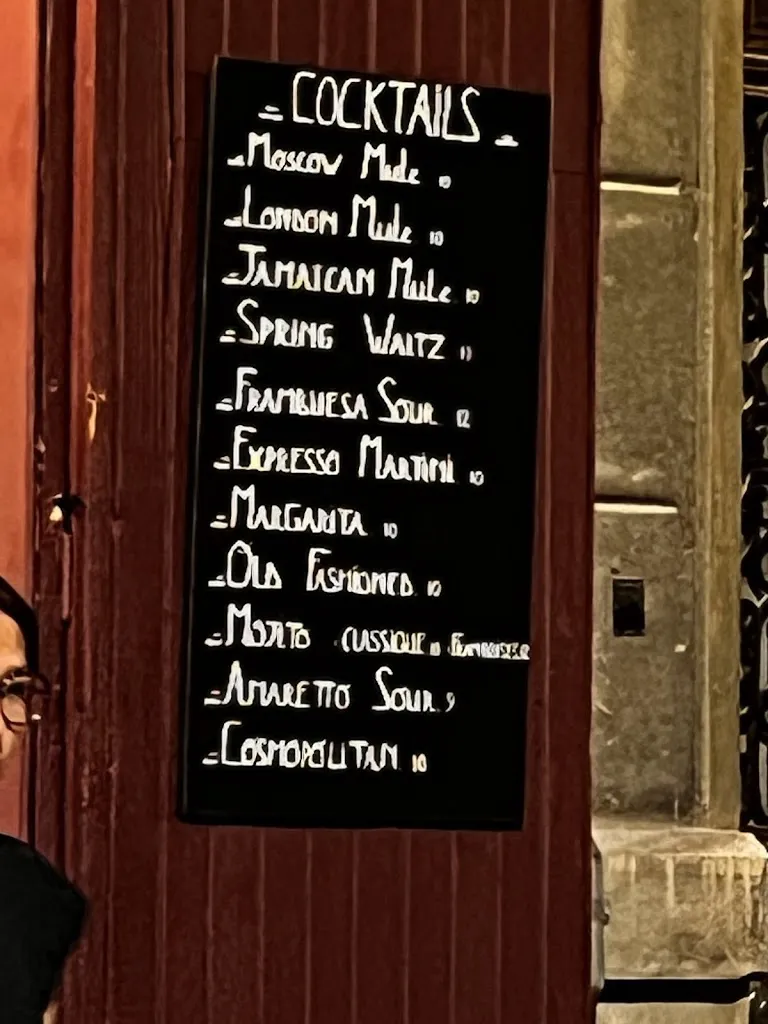 = COCKTAILS =
= Moscow Mule 10
= London Mule 10
= Jamaican Mule 10
= Spring Waltz 11
= Frambuesa Sour 12
= Expresso Martini 10
= Margarita 10
= Old Fashioned 10
= Mojito classique 10
= Amaretto Sour 9
= Cosmopolitan 10